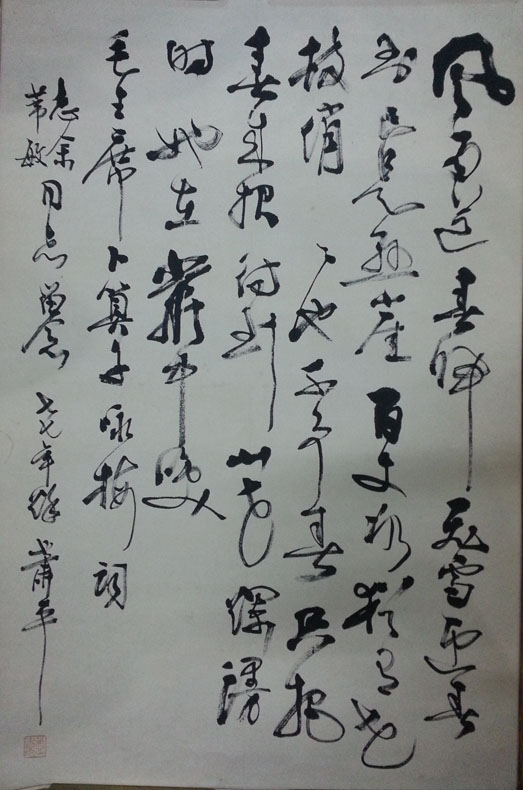 风雨送春归飞雪迎春
到已是悬崖百丈冰犹有花
枝俏々也不争春只把
春来报待到山花烂漫
时她在丛中笑
毛主席卜算子咏梅词
同志留念 七七年 萧平